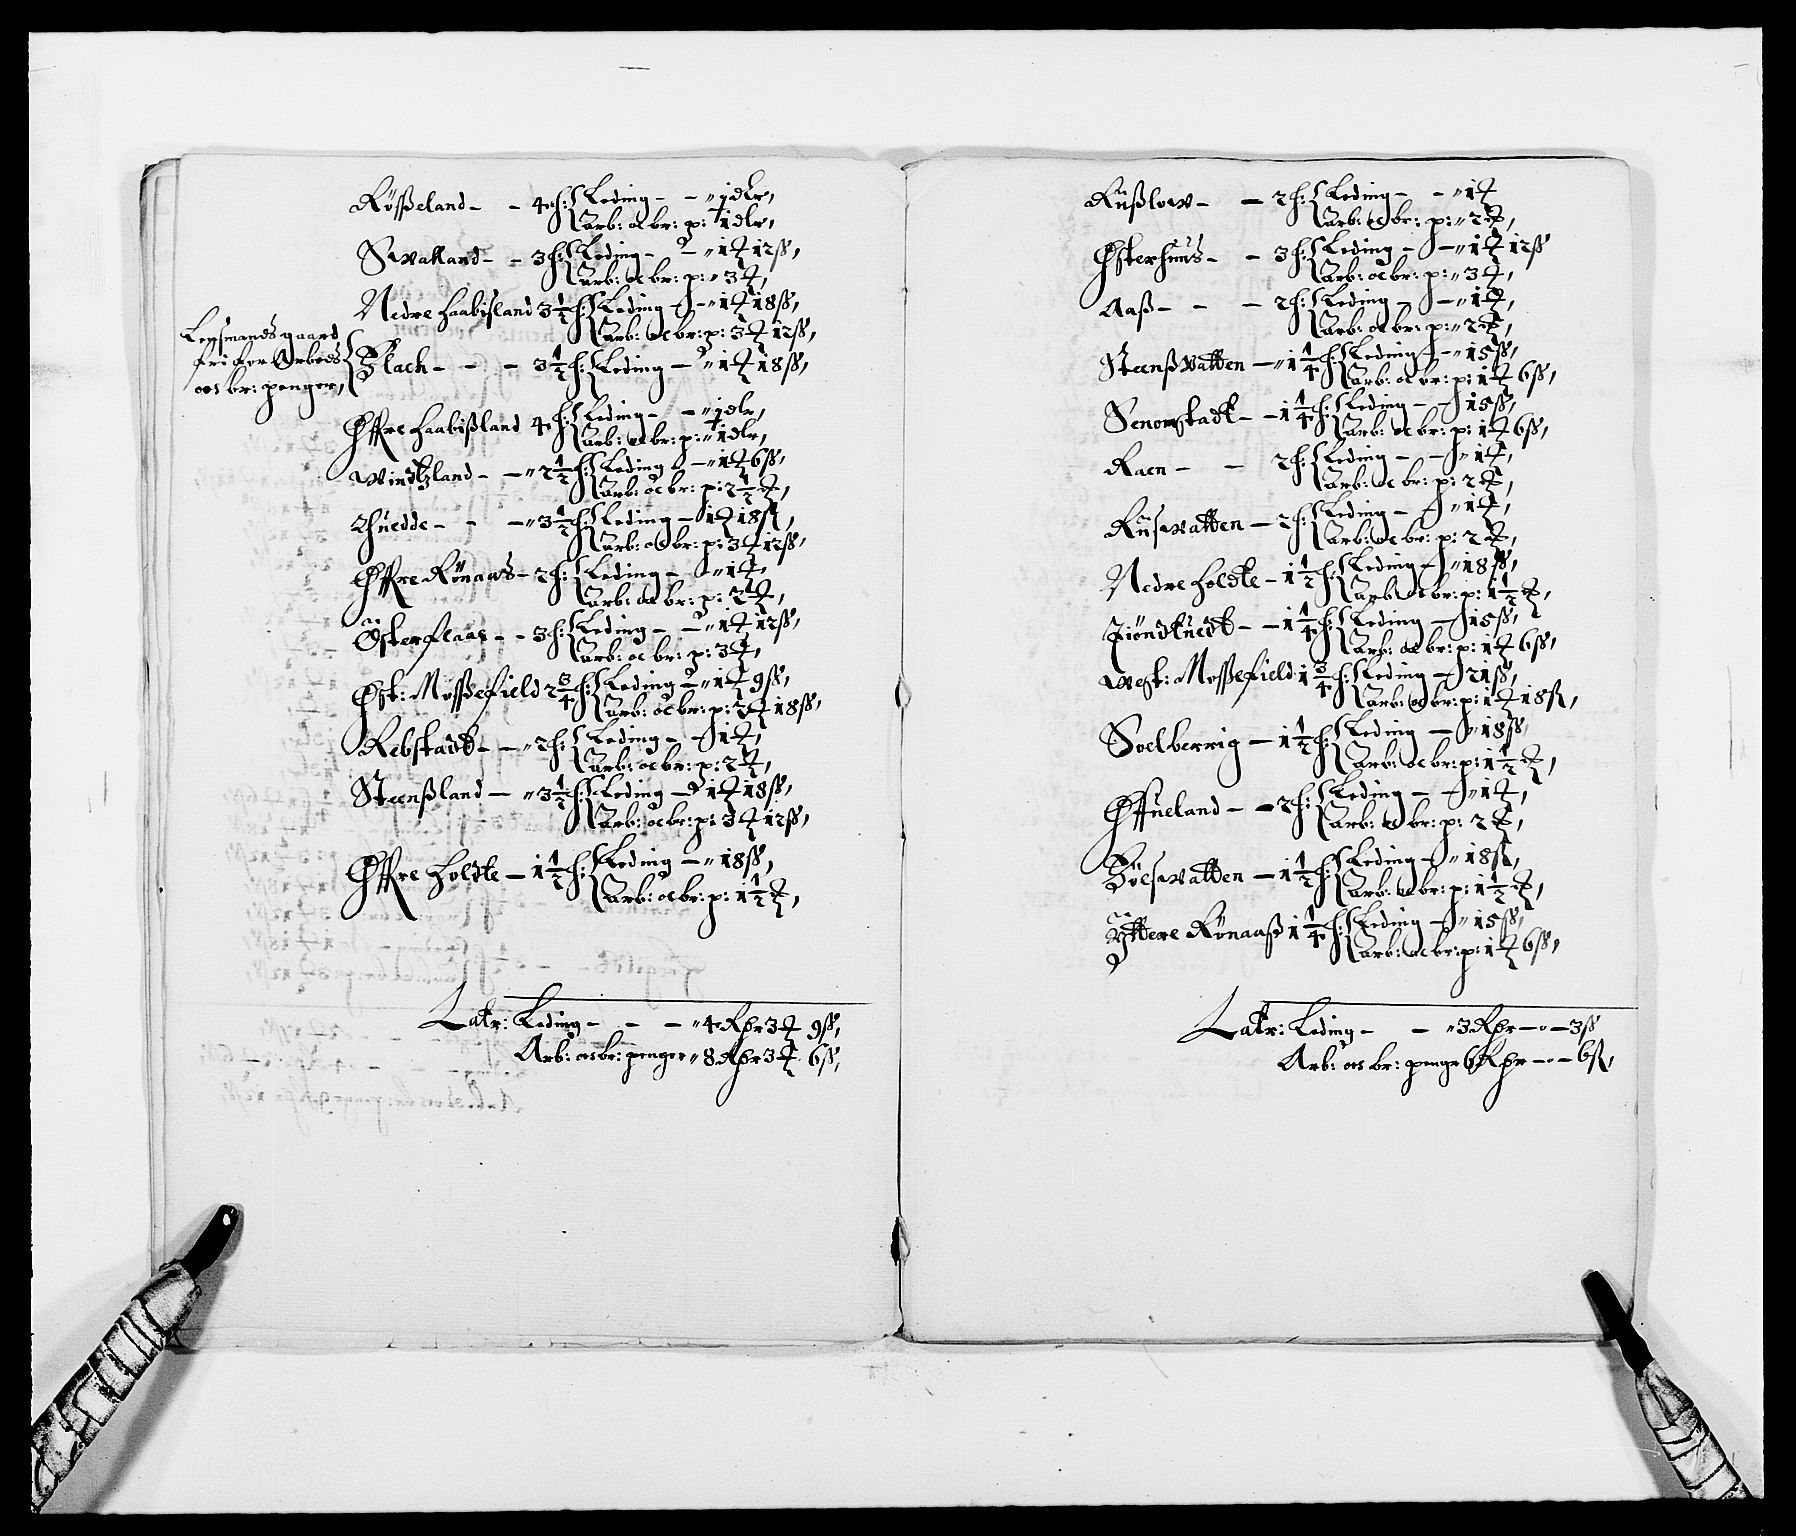 Rösseland - - 4 h: Leding - - " 1 dlr,
arb: oc br: p: " 1 dlr,
Swalland - - 3 h: Leding - - " 1 ꝶ 12 ß,
arb: oc br: p: " 3 ꝶ,
Nedre Haabißland 3 1/2 h: Leding - " 1 ꝶ 18 ß,
arb: oc br: p: 3 ꝶ 12 ß,
Lensmands gaard
fri for Arbeds
oc br: penger,
Flach - - - 3 1/2 h: Leding - " 1 ꝶ 18 ß,
Øffre Haabißland 4 h: Leding - - " 1 dlr,
arb: oc br: p: " 1 dlr,
Windtzland - - " 2 1/2 h: Leding - " 1 ꝶ 6 ß,
arb: oc br: p: 2 1/2 ꝶ,
Thuedde - - - " 3 1/2 h: Leding - 1 ꝶ 18 ß,
arb: oc br: p: 3 ꝶ 12 ß,
Øffre Rönaas - 2 h: Leding - " 1 ꝶ,
arb: oc br: p: 2 ꝶ,
Österflaar - - 3 h: Leding - - " 1 ꝶ 12 ß,
arb: oc br: p: 3 ꝶ,
Øst: Mossefield 2 3/4 h: Leding - " 1 ꝶ 9 ß,
arb: oc br: p: 2 ꝶ 18 ß,
Rebstadt - - " 2 h: Leding - - 1 ꝶ,
arb: oc br: p: 2 ꝶ,
Steenßland - " 3 1/2 h: Leding - 1 ꝶ 18 ß,
arb: oc br: p: 3 ꝶ 12 ß,
Øffre Holdte - 1 1/2 h: Leding - " 18 ß,
arb: oc br: p: 1 1/2 ꝶ,
Latr: Leding - - - " 4 Rdr 3 ꝶ 9 ß,
Arb: oc br: penger " 8 Rdr 3 ꝶ 6 ß,
Rüßlow - - 2 h: Leding - - " 1 ꝶ
arb: oc br: p: " 2 ꝶ,
Østerhuus - - 3 h: Leding - - " 1 ꝶ 12 ß
arb: oc br: p: " 3 ꝶ,
Aaß - - - 2 h: Leding - - " 1 ꝶ,
arb: oc br: p: " 2 ꝶ,
Steenßvatten - " 1 1/4 h: Leding - - " 15 ß,
arb: oc br: p: 1 ꝶ 6 ß,
Senomstadt - - 1 1/4 h: Leding - - 15 ß,
arb: oc br: p: 1 ꝶ 6 ß,
Raen - - 2 h: Leding - - " 1 ꝶ,
arb: oc br: p: 2 ꝶ,
Rüswatten - 2 h: Leding - - " 1 ꝶ,
arb: oc br: p: 2 ꝶ,
Nedre Holdte - 1 1/2 h: Leding - " 18 ß,
arb: oc br: p: 1 1/2 ꝶ,
Tiöndtuedt - - 1 1/4 h: Leding - 15 ß,
arb: oc br: p: 1 ꝶ 6 ß,
West: Mossefield 1 3/4 h: Leding - 21 ß,
arb: oc br: p: 1 ꝶ 18 ß,
Soelberrig - 1 1/2 h: Leding - " 18 ß
arb: oc br: p: 1 1/2 ꝶ,
Øffueland - - 2 h: Leding - - " 1 ꝶ,
arb: oc br: p: 2 ꝶ,
Böeswatten - 1 1/2 h: Leding - " 18 ß,
arb: oc br: p: 1 1/2 ꝶ,
Ÿttere Rönaaß 1 1/4 h: Leding - " 15 ß,
arb: oc br: p: 1 ꝶ 6 ß,
Latr: Leding - - " 3 Rdr - o - 3 ß
Arb: oc br: penge 6 Rdr - o - 6 ß,